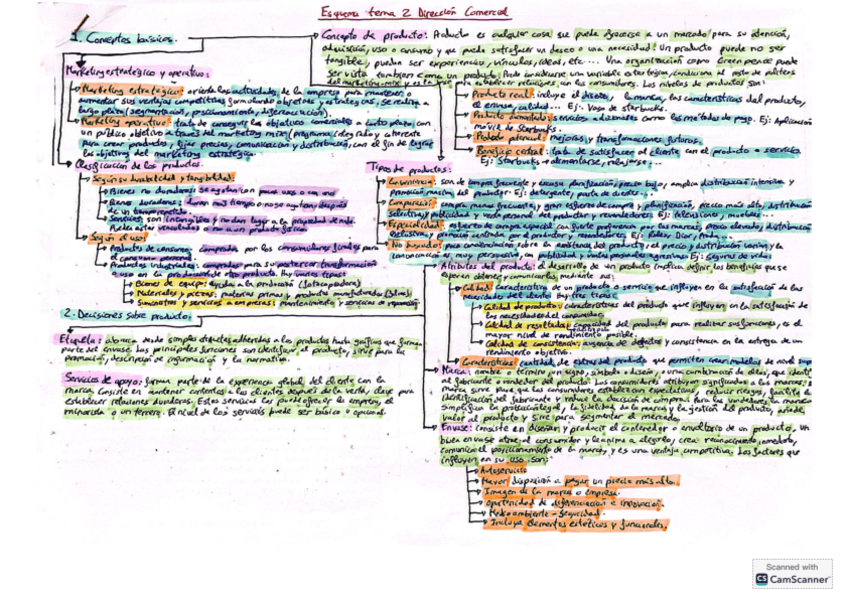 Esquema tema 2 Dirección Comercial
1. Conceptos básicos.
Concepto de producto: Producto es cualquier cosa que puede ofrecerse a un mercado para su atención,
adquisición, uso o consumo y que puede satisfacer un deseo o una necesidad. Un producto puede no ser
tangible, pueden ser experiencias, vínculos, ideas, etc... Una organización como Green peace puede
ser vista también como un producto.
Los niveles de productos son:
Producto real: incluye el diseño, la marca, las características del producto,
el envase, calidad... Ej: Vaso de starbucks.
Producto aumentado: servicios adicionales como los métodos de pago. Ej: Aplicación
móvil de Starbucks.
Producto potencial: mejoras y transformaciones futuras.
Beneficio central: trata de satisfacer al cliente con el producto o servicio.
Ej: Starbucks → alimentarse, relajarse...
Marketing estratégico y operativo:
Marketing estratégico: orienta las actividades de la empresa para mantener o
aumentar sus ventajas competitivas formulando objetivos y estrategias, se realiza a
largo plazo (segmentación, posicionamiento, diferenciación).
Marketing operativo: trata de conseguir los objetivos comerciales a corto plazo, con
un público objetivo a través del marketing mix (programa integrado y coherente
para crear productos, fijar precios, comunicación y distribución, con el fin de lograr
los objetivos del marketing estratégico.
Clasificación de los productos.
Según su durabilidad y tangibilidad:
Bienes no duraderos: se agotan con pocos usos o con uno
Bienes duraderos: duran más tiempo o no se agotan después
de un
Servicios: son intangibles y no dan lugar a la propiedad de nada.
Puede estar vinculados o no a un producto físico.
Según el uso:
Productos de consumo: comprados por los consumidores finales para
el consumo personal.
Productos industriales: comprados para su posterior transformación
o uso en la producción de otro producto. Hay varios tipos:
Bienes de equipo: ayudan a la producción (fotocopiadora)
Materiales y piezas: materias primas y productos manufacturados
Suministros y servicios a empresas: mantenimiento y servicios de reparación
Tipos de productos:
Conveniencia: son de compra frecuente y escasa planificación, precio bajo, amplia distribución intensiva y
promoción masiva del productor. Ej: detergente, pasta de dientes...
Comparación: compra menos frecuente, y gran esfuerzo de compra y planificación, precio más alto, distribución
selectiva, publicidad y venta personal del productor y revendedores. Ej: televisiones, muebles...
Especialidad: esfuerzo de compra especial con fuerte preferencia por las marcas, precio elevado, distribución
exclusiva, y promoción centrada por el productor y revendedores. Ej: Rolex, Dior, Prada...
No buscados: poca concienciación sobre la existencia del producto, el precio y distribución varían y la
comunicación es muy persuasiva, con publicidad y ventas personales agresivas. Ej: Seguros de vida
2. Decisiones sobre producto:
Atributos del producto: el desarrollo de un producto implica definir los beneficios que se
esperan obtener y comunicarlos, mediante sus:
Calidad: característica de un producto o servicio que influyen en la satisfacción de las
necesidades del cliente. Hay tres tipos:
Calidad de producto: características del producto que influyen en la satisfacción de
las necesidades del consumidor.
Calidad de resultados: capacidad del producto para realizar sus funciones, es el
mayor nivel de rendimiento posible.
Calidad de consistencia: ausencia de defectos y consistencia en la entrega de un
rendimiento objetivo.
Características: cantidad de extras del producto que permiten crear modelos de nivel
Marca: nombre o término, un signo, símbolo o diseño, o una combinación de ellos, que
al fabricante o vendedor del producto. Los consumidores atribuyen significados a las marcas,
marca sirve para que los consumidores establezcan expectativas, reducir riesgos, facilita la
identificación del fabricante y reduce la decisión de compra. Para los vendedores la marca
simplifica la protección legal, la fidelidad de la marca y la gestión del producto, añade
valor al producto y sirve para segmentar el mercado.
Envase: consiste en diseñar y producir el contenedor o envoltorio de un producto. Un
buen envase atrae al consumidor y le anima a elegirlo, crea reconocimiento inmediato,
comunica el posicionamiento de la marca, y es una ventaja competitiva. Los factores que
influyen en su uso son:
Autoservicio
Mayor disposición a pagar un precio más alto.
Imagen de la marca o empresa.
Oportunidad de diferenciación e innovación.
Medio ambiente - Seguridad.
Incluye elementos estéticos y funcionales.
Etiqueta: abarca desde simples etiquetas adheridas a los productos hasta gráficos que forman
parte del envase. Sus principales funciones son identificar el producto, sirve para la
promoción, descripción de información y la normativa.
Servicios de apoyo: forma parte de la experiencia global del cliente con la
marca. Consiste en mantener contentos a los clientes después de la venta, clave para
establecer relaciones duraderas. Estos servicios los puede ofrecer la empresa, el
minorista o un tercero. El nivel de los servicios puede ser básico o opcional.
Scanned with
CS CamScanner